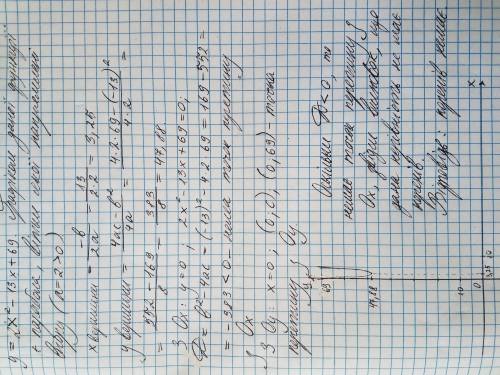 y = 2x² - 13x + 69 Графіком даної функції
є парабола, вітки якої напрямлені
вгору (a = 2 > 0)
x вершини = -b/2a = 13/2·2 = 3,25
y вершини = 4ac - b²/4a = 4·2·69 - (-13)²/4·2 =
= 552 - 169/8 = 383/8 = 47,88
З Ox: y = 0; 2x² - 13x + 69 = 0;
D = b² - 4ac = (-13)² - 4·2·69 = 169 - 552 =
= -383 < 0 - нема точок перетину
з Ox
З Oy: x = 0; (0, c), (0, 69) - точка
перетину з Oy
y
69
47,88
10
0
3,25
x
Оскільки D < 0, то
немає точок перетину з
Ox,
що
дана нерівність не має
коренів.
Відповідь: коренів немає.